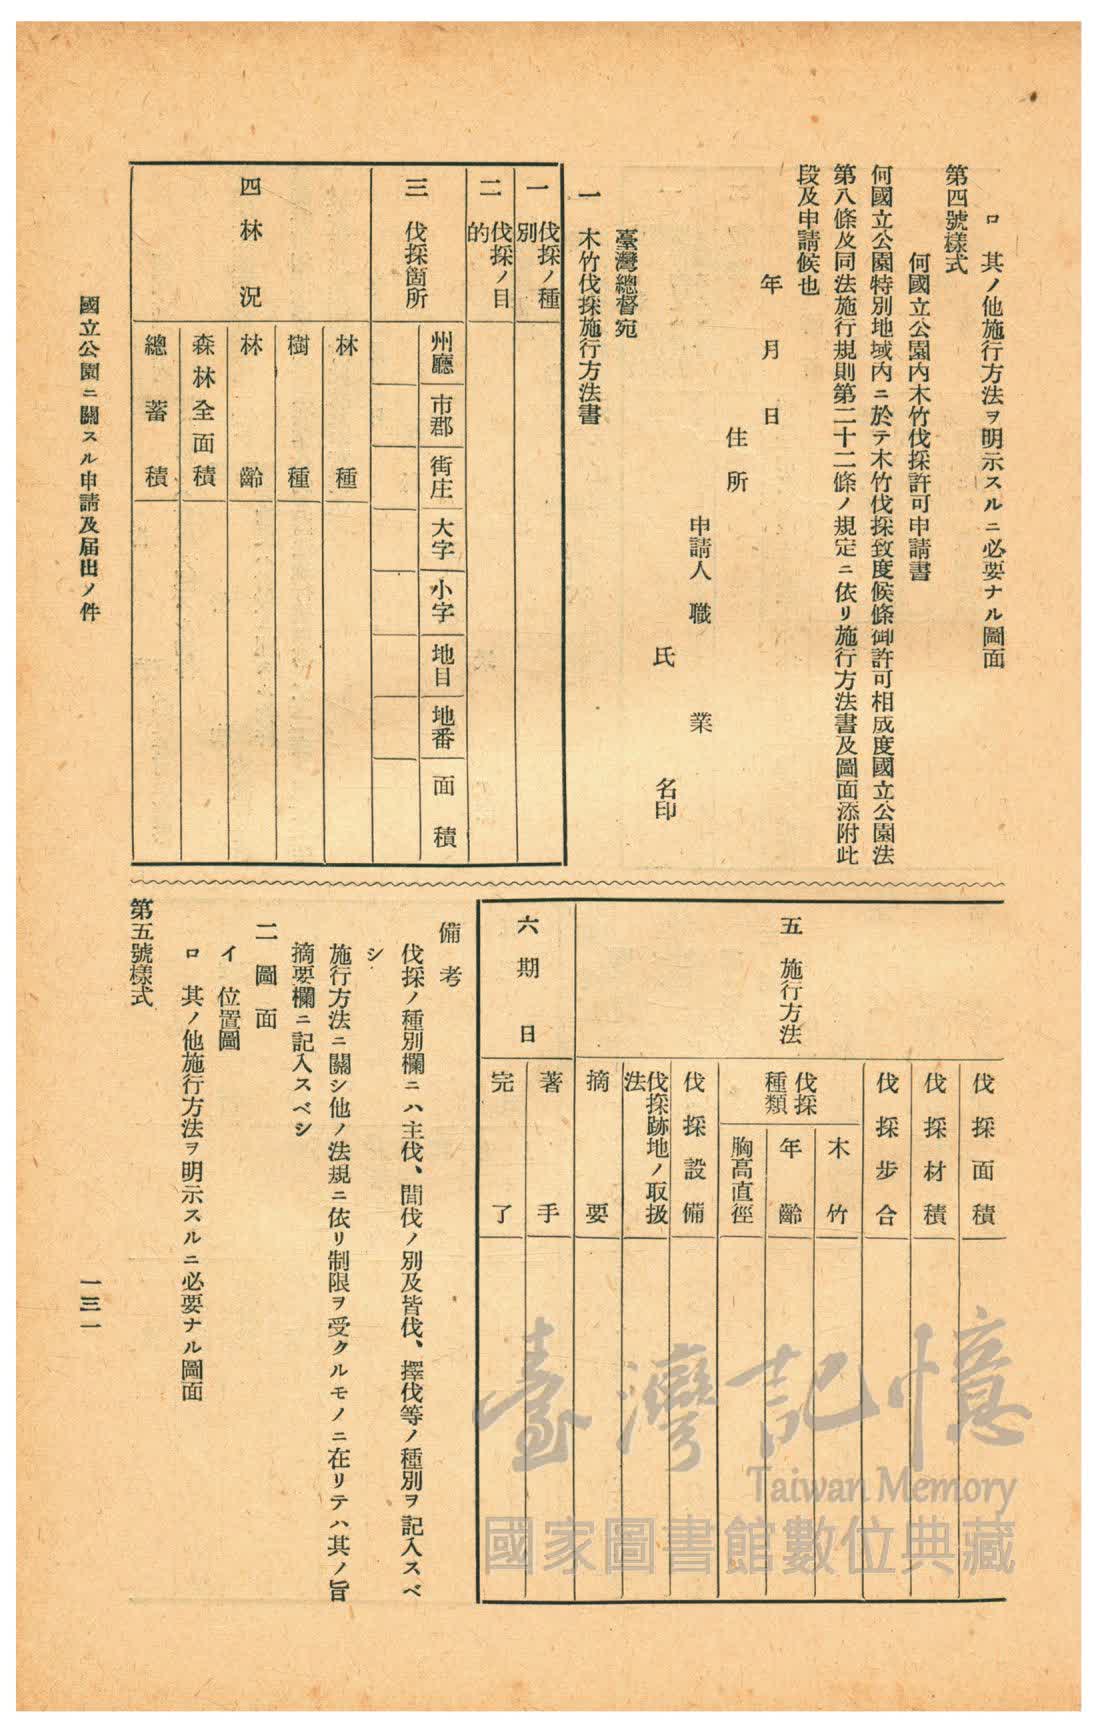 ロ 其ノ他施行方法ヲ明示スルニ必要ナル圖面
第四號樣式
何國立公園內木竹伐採許可申請書
何國立公園特別地域內ニ於テ木竹伐採致度候條御許可相成度國立公園法
第八條及同法施行規則第二十二條ノ規定ニ依リ施行方法書及圖面添附此
段及申請候也
年 月 日
住所
申請人 職 業
氏 名印
臺灣總督宛
一 木竹伐採施行方法書
一 伐採ノ種別
二 伐採ノ目的
三 伐採箇所
州廳
市郡
街庄
大字
小字
地目
地番
面積
四 林況
林種
樹種
林齡
森林全面積
總蓄積
五 施行方法
伐採面積
伐採材積
伐採步合
伐採種類
木竹
年齡
胸高直徑
伐採設備
伐採跡地ノ取扱法
摘要
六 期日
著手
完了
備考
伐採ノ種別欄ニハ主伐、間伐ノ別及皆伐、擇伐等ノ種別ヲ記入スベ
シ
施行方法ニ關シ他ノ法規ニ依リ制限ヲ受クルモノニ在リテハ其ノ旨
摘要欄ニ記入スベシ
二 圖面
イ 位置圖
ロ 其ノ他施行方法ヲ明示スルニ必要ナル圖面
第五號樣式
國立公園ニ關スル申請及届出ノ件
一三一
臺灣記憶
Taiwan Memory
國家圖書館數位典藏